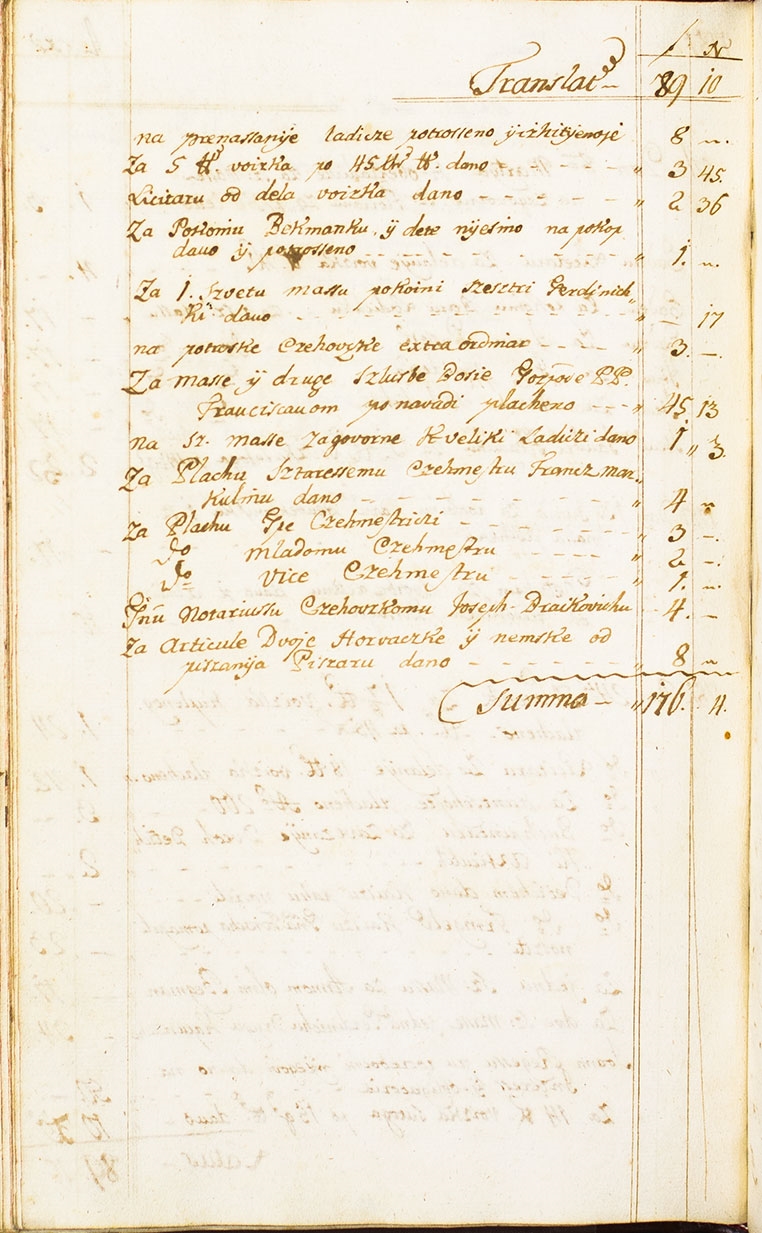 f N
Translat 89 10
na prenassanije ladicze potrosseno ÿ izkitjenoje 8 „.
Za 5 ℔. voizka po 45 ℔. dano „ 3 45.
Liciraru od dela voizka dano „ 2 36
Za Pokoiniu Bekmanku, ÿ dete nijesmo na pokop
davo ÿ potrosseno „ 1. „.
Za 1. Szvetu massu pokoini szesztri Gerdinich
ki davo „ — 17
na potroske Czehovzke extra ordinar „ 3. —.
Za masse ÿ druge szlusbe Bosie Gozpode P.P.
Franciscanom po navadi placheno „ 45. 13
na sz. masse zagovorne k veliki Ladiczi dano 1 „ 3.
Za Plachu sztaressemu Czehmestru Francz mar-
kulinu dano „ 4 „
Za Plachu Gpe Czehmestriczi „ 3 —.
do mladomu Czehmestru „ 2 —.
do vice Czehmestru „ 1. „.
Gnu Notariussu Czehovzkomu Joseph Draskovichu 4. —
Za Articule Dvoje Horvaczke ÿ nemske od
piszanija Piszaru dano „ 8 „
Summa „ 176. 4.